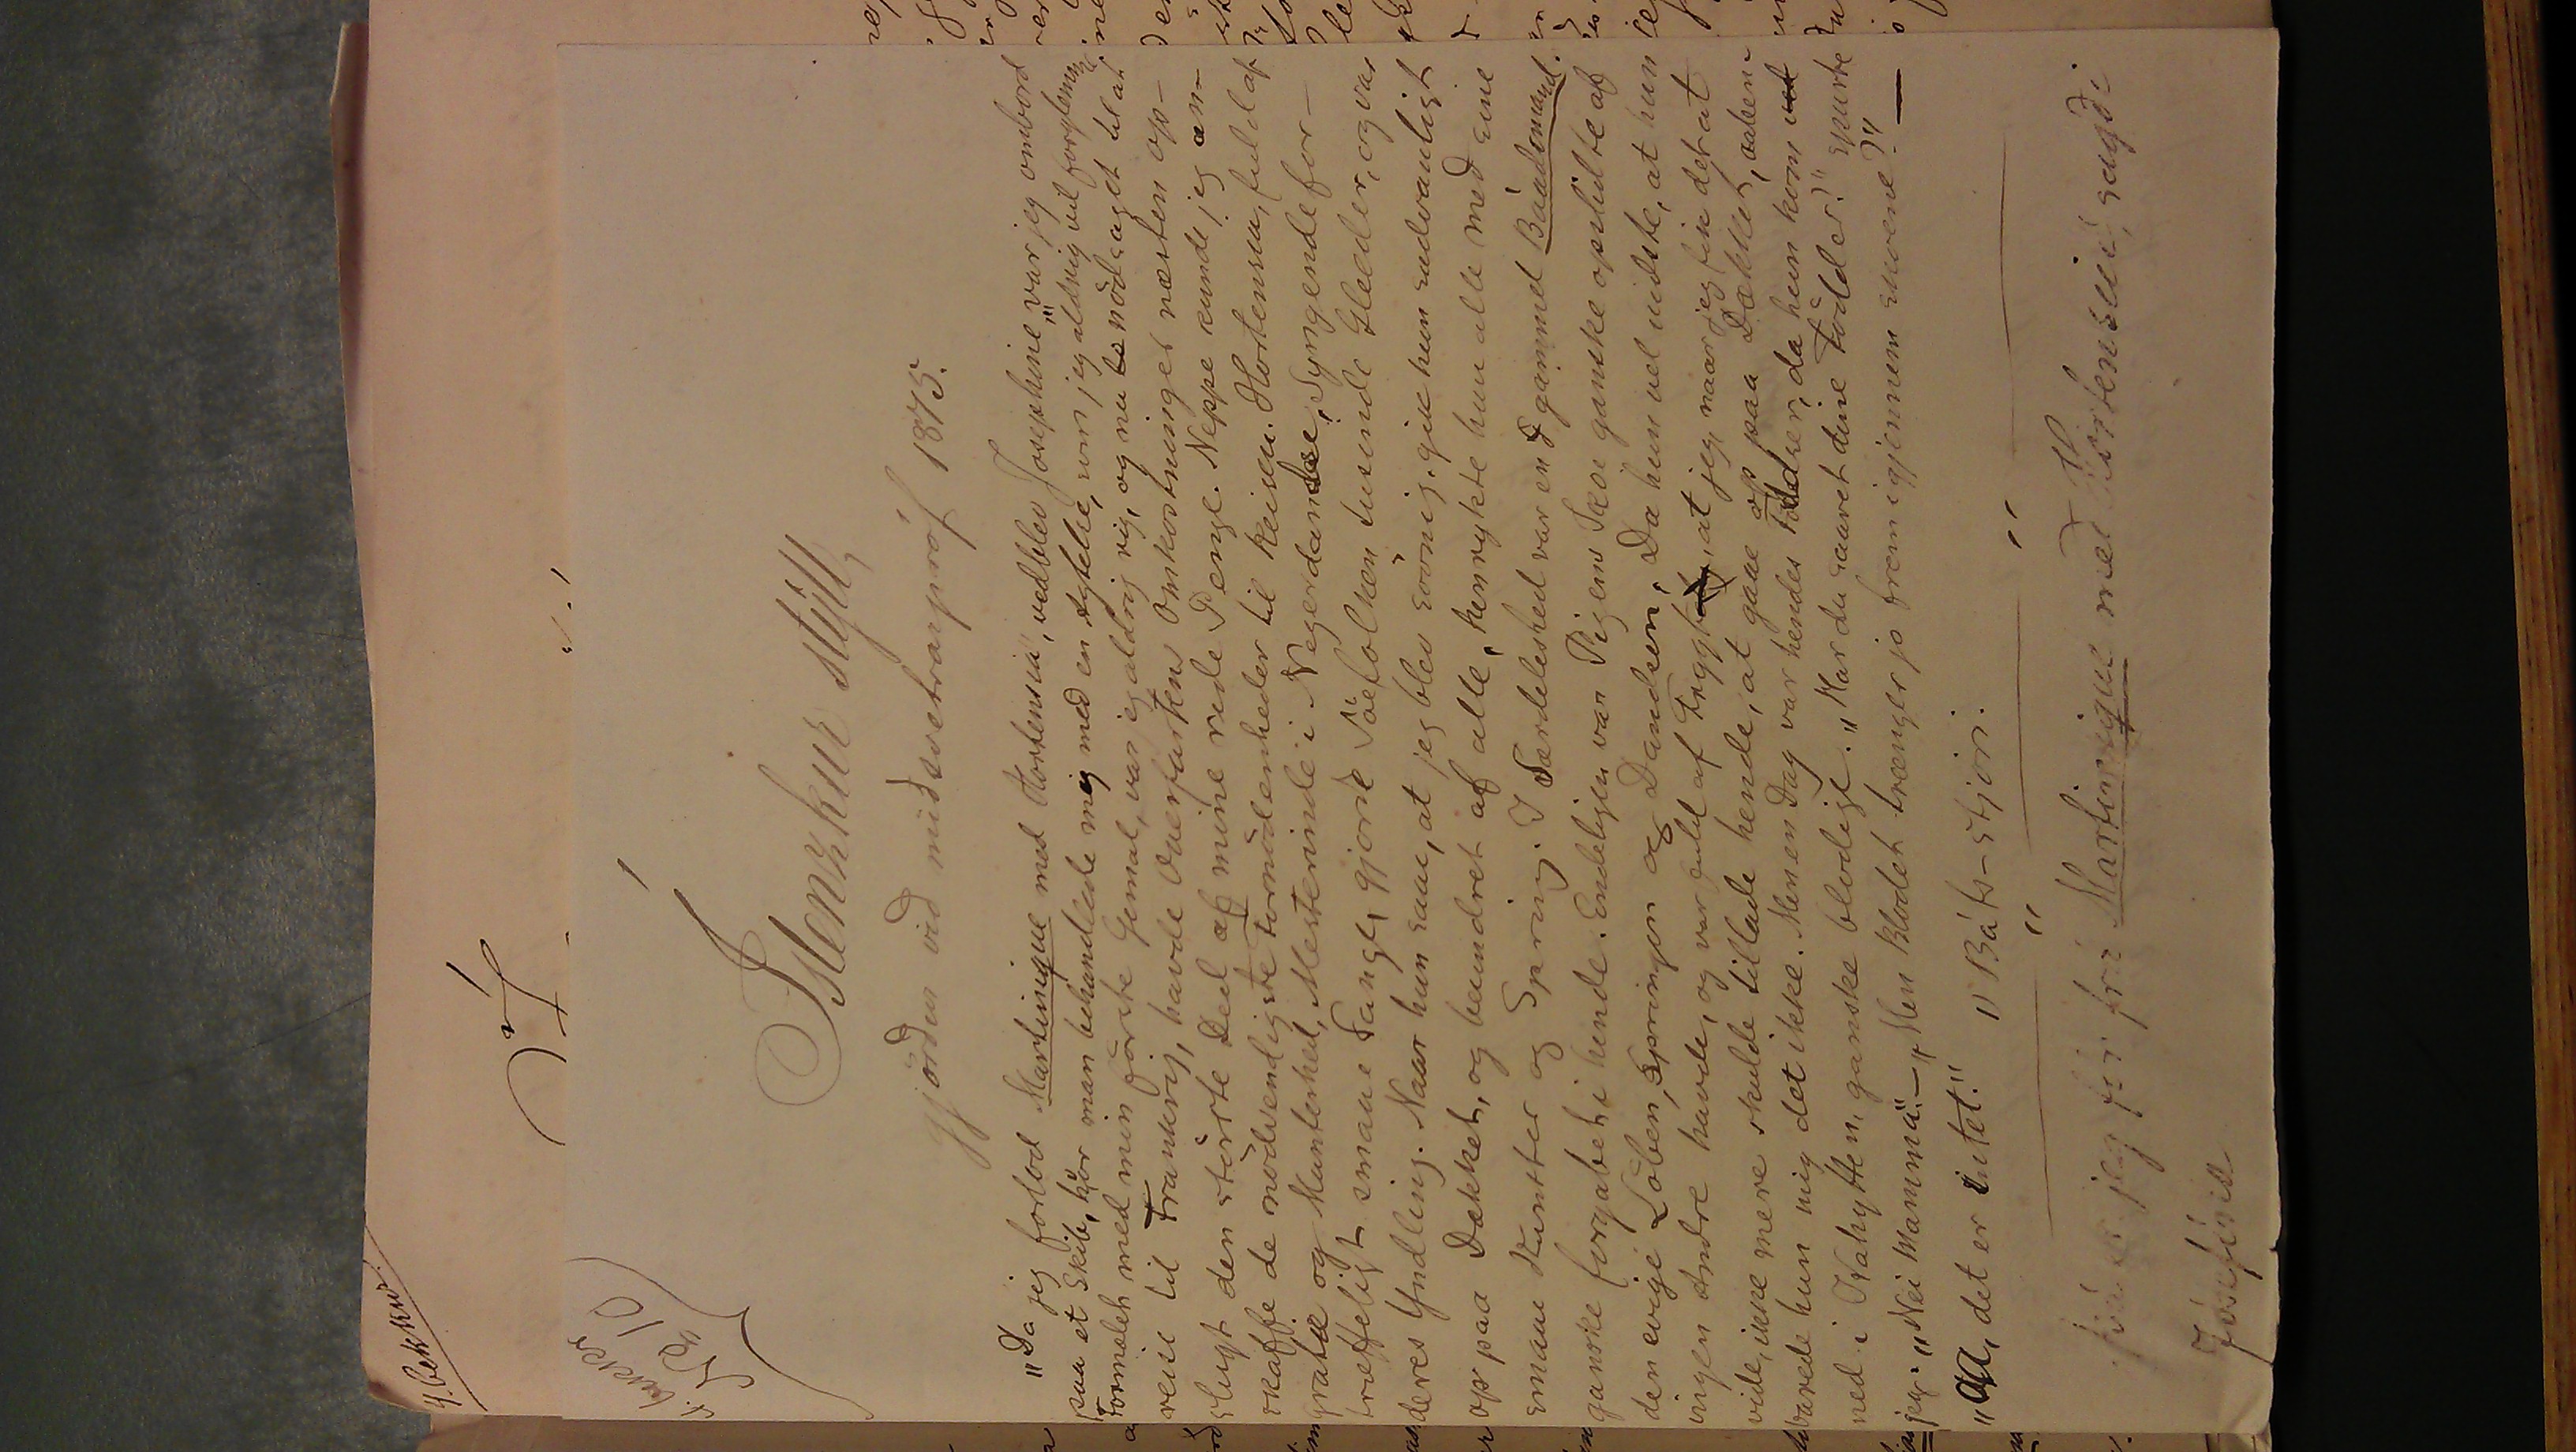 4. bekkur.
4. bekkur
No 10
Íslenzkur stýll,
gjörður við miðsvetrarpróf 1875.
"Da jeg forlod Martinique med Hortensia", vedblev Josephine, "var jeg ombord
paa et Skib, hvor man behandlede mig med en Agtelse, som jeg aldrig vil forglemme.
Formælet med min förste Gemal, var jeg aldrig rig, og nu nödsaget til at
reise til Frankrig, havde Overfartens Omkostninger næsten op-
slugt den störste Deel af mine rede Penge. Neppe kunde jeg an-
skaffe de nödvendigste Fornödenheder til Reisen. Hortensia, fuld af
gratie og Munterhed, Mesterinde i Negerdandse, Syngende for-
træffeligt smaae Sange, gjorde Söefolken tusinde Glæder, og var
deres Yndling. Naar hun saae, at jeg blev sövnig, gik hun sædvanligt
op paa Dækket, og beundret af alle, henrykte hun alle med sine
smaae Kunster og Spring. I Særdeleshed var en gammel Baadsmand
ganske forgabet i hende. Endeligen var Pigens Skoe ganske opslidte af
den evige Löben, Springen og Dandsen. Da hun vel vidste, at hun
ingen Andre havde, og var fuld af Frygt, at jeg, naar jeg fik det at
vide, ikke mere skulde tillade hende, at gaae op paa Dækket, aaben-
barede hun mig det ikke. Men en Dag var hendes Födder, da hun kom
ned i Kahytten, ganske blodige. "Har du saaret dine Födder?" spurte
jeg. "Nei Mamma". — "Men Blodet trænger jo frem igjennem Skoene?" —
"Aa, det er intet." "Báts-stjóri.
jeg fór frá Martinique með Hortensíu, sagði
Jósefína